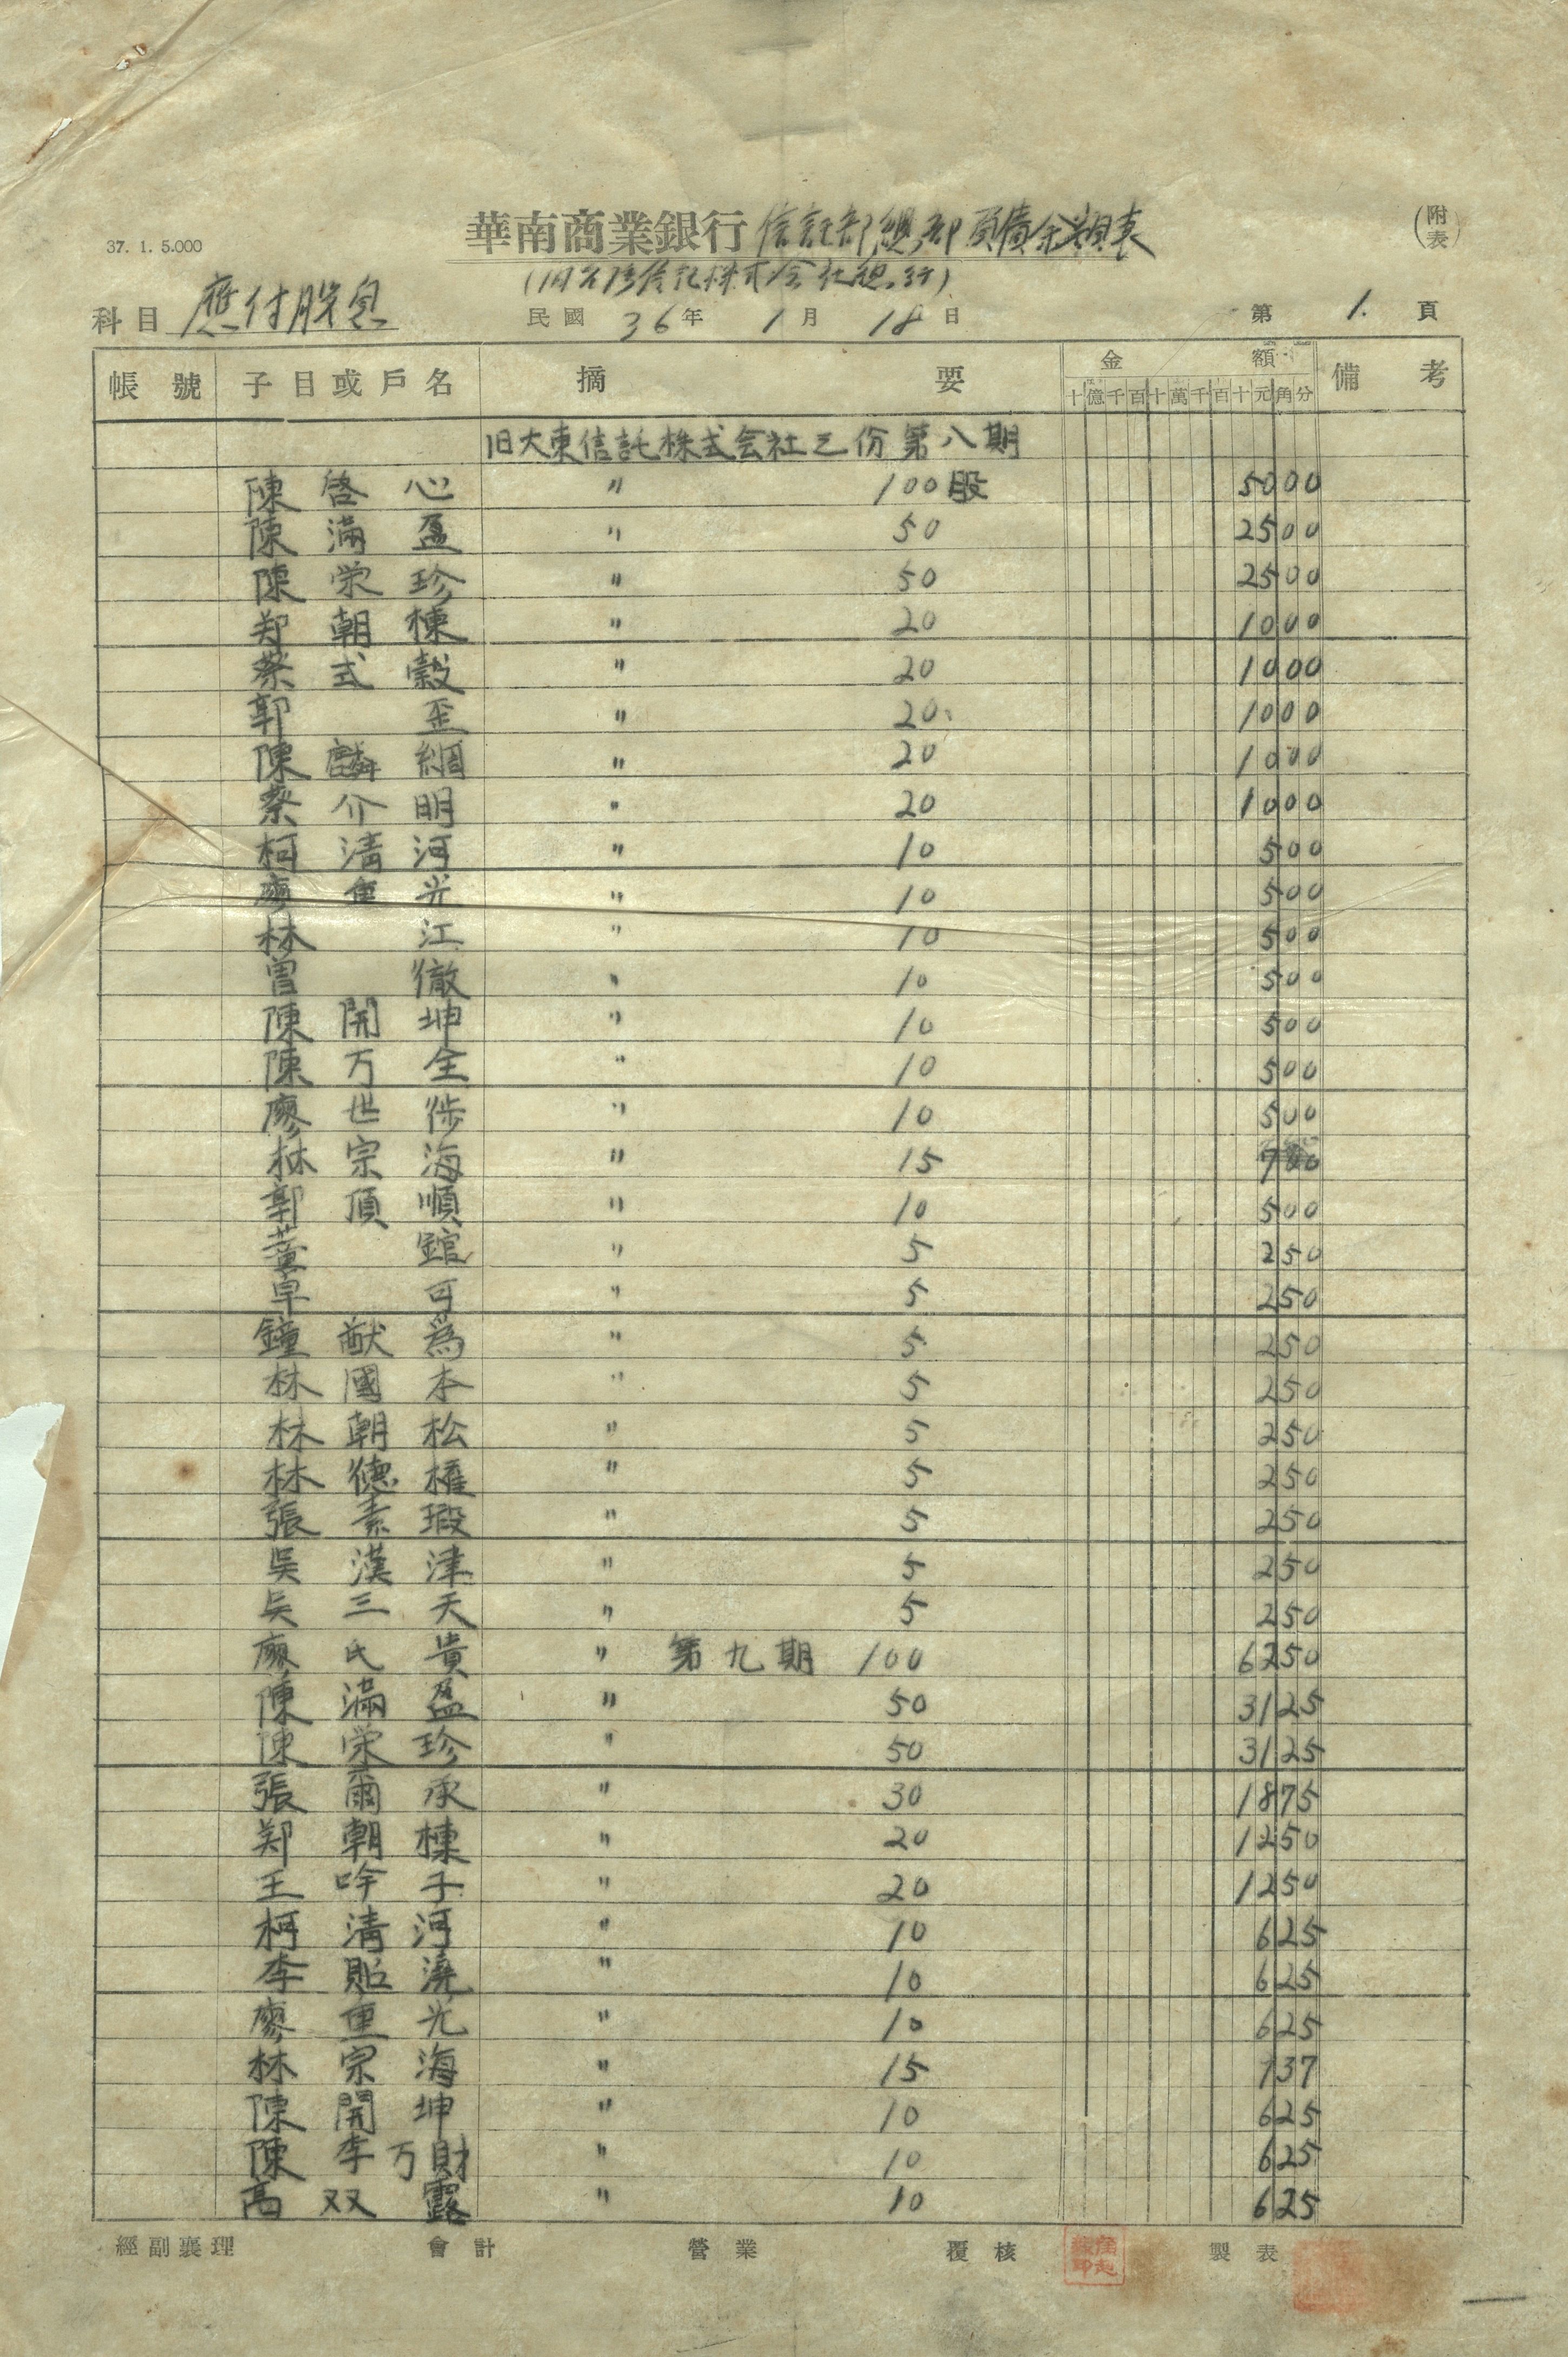 華南商業銀行 信託部總部負債余額表
(附表)
37. 1. 5.000
科目 應付股息
民國 36 年 1 月 18 日
第 1. 頁
帳號 子目或戶名 摘要 金額 備考
十億千百十萬千百十元角分
旧大東信託株式会社之份第八期
陳啓心 〃 100股 5000
陳滿盈 〃 50 2500
陳栄珍 〃 50 2500
郑朝棟 〃 20 1000
蔡式穀 〃 20 1000
郭歪 〃 20 1000
陳麟綢 〃 20 1000
蔡介明 〃 20 1000
柯清河 〃 10 500
廖重光 〃 10 500
林江 〃 10 500
曽徹 〃 10 500
陳開坤 〃 10 500
陳万全 〃 10 500
廖世 〃 10 500
林宗海 〃 15
郭頂順 〃 10 500
董錧 〃 5 250
卓可 〃 5 250
鐘猷為 〃 5 250
林國本 〃 5 250
林朝松 〃 5 250
林德權 〃 5 250
張素瑕 〃 5 250
吳漢津 〃 5 250
吳三天 〃 5 250
廖氏貴 〃 第九期 100 6250
陳滿盈 〃 50 3125
陳栄珍 〃 50 3125
張爾承 〃 30 1875
郑朝棟 〃 20 1250
王吟子 〃 20 1250
柯清河 〃 10 625
李貽澆 〃 10 625
廖重光 〃 10 625
林宗海 〃 15 737
陳開坤 〃 10 625
陳李万財 〃 10 625
高双露 〃 10 625
經副襄理 會計 營業 覆核 製表